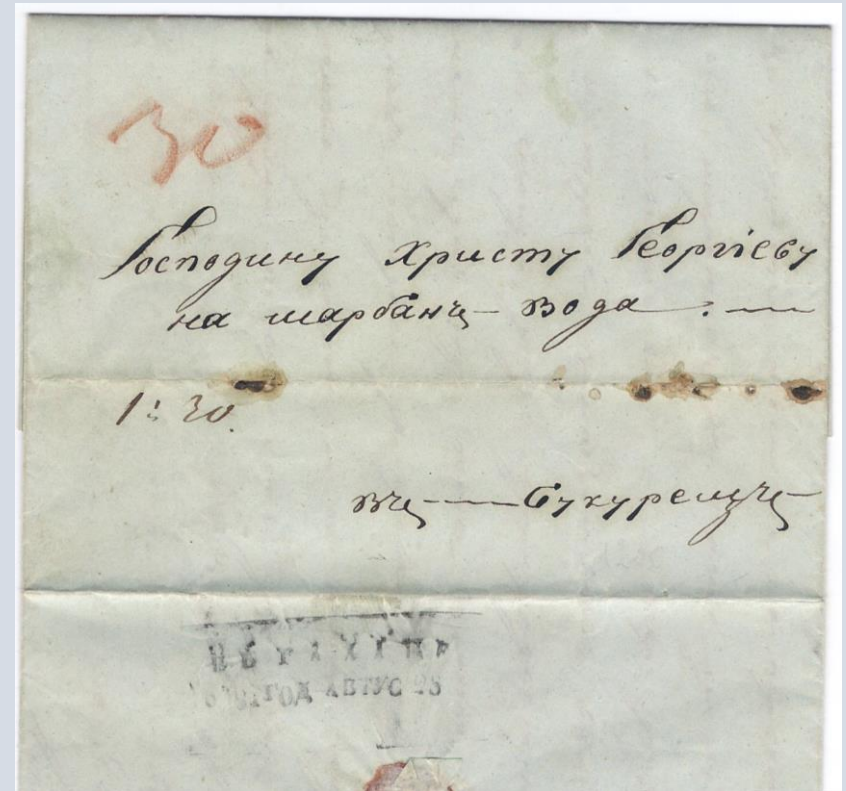 30
Господину Христу Георгіеву
на шарбанъ – вода . —
1: 30.
въ — Букурещъ –
ГОД АВГУС 28